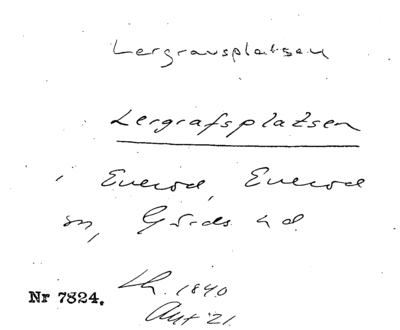 Lergravsplatsen
Lergrafsplatsen
i Everöd, Everöd
sn, Gärds hd.
Lh. 1840
Nr 7824.
Akt 21.